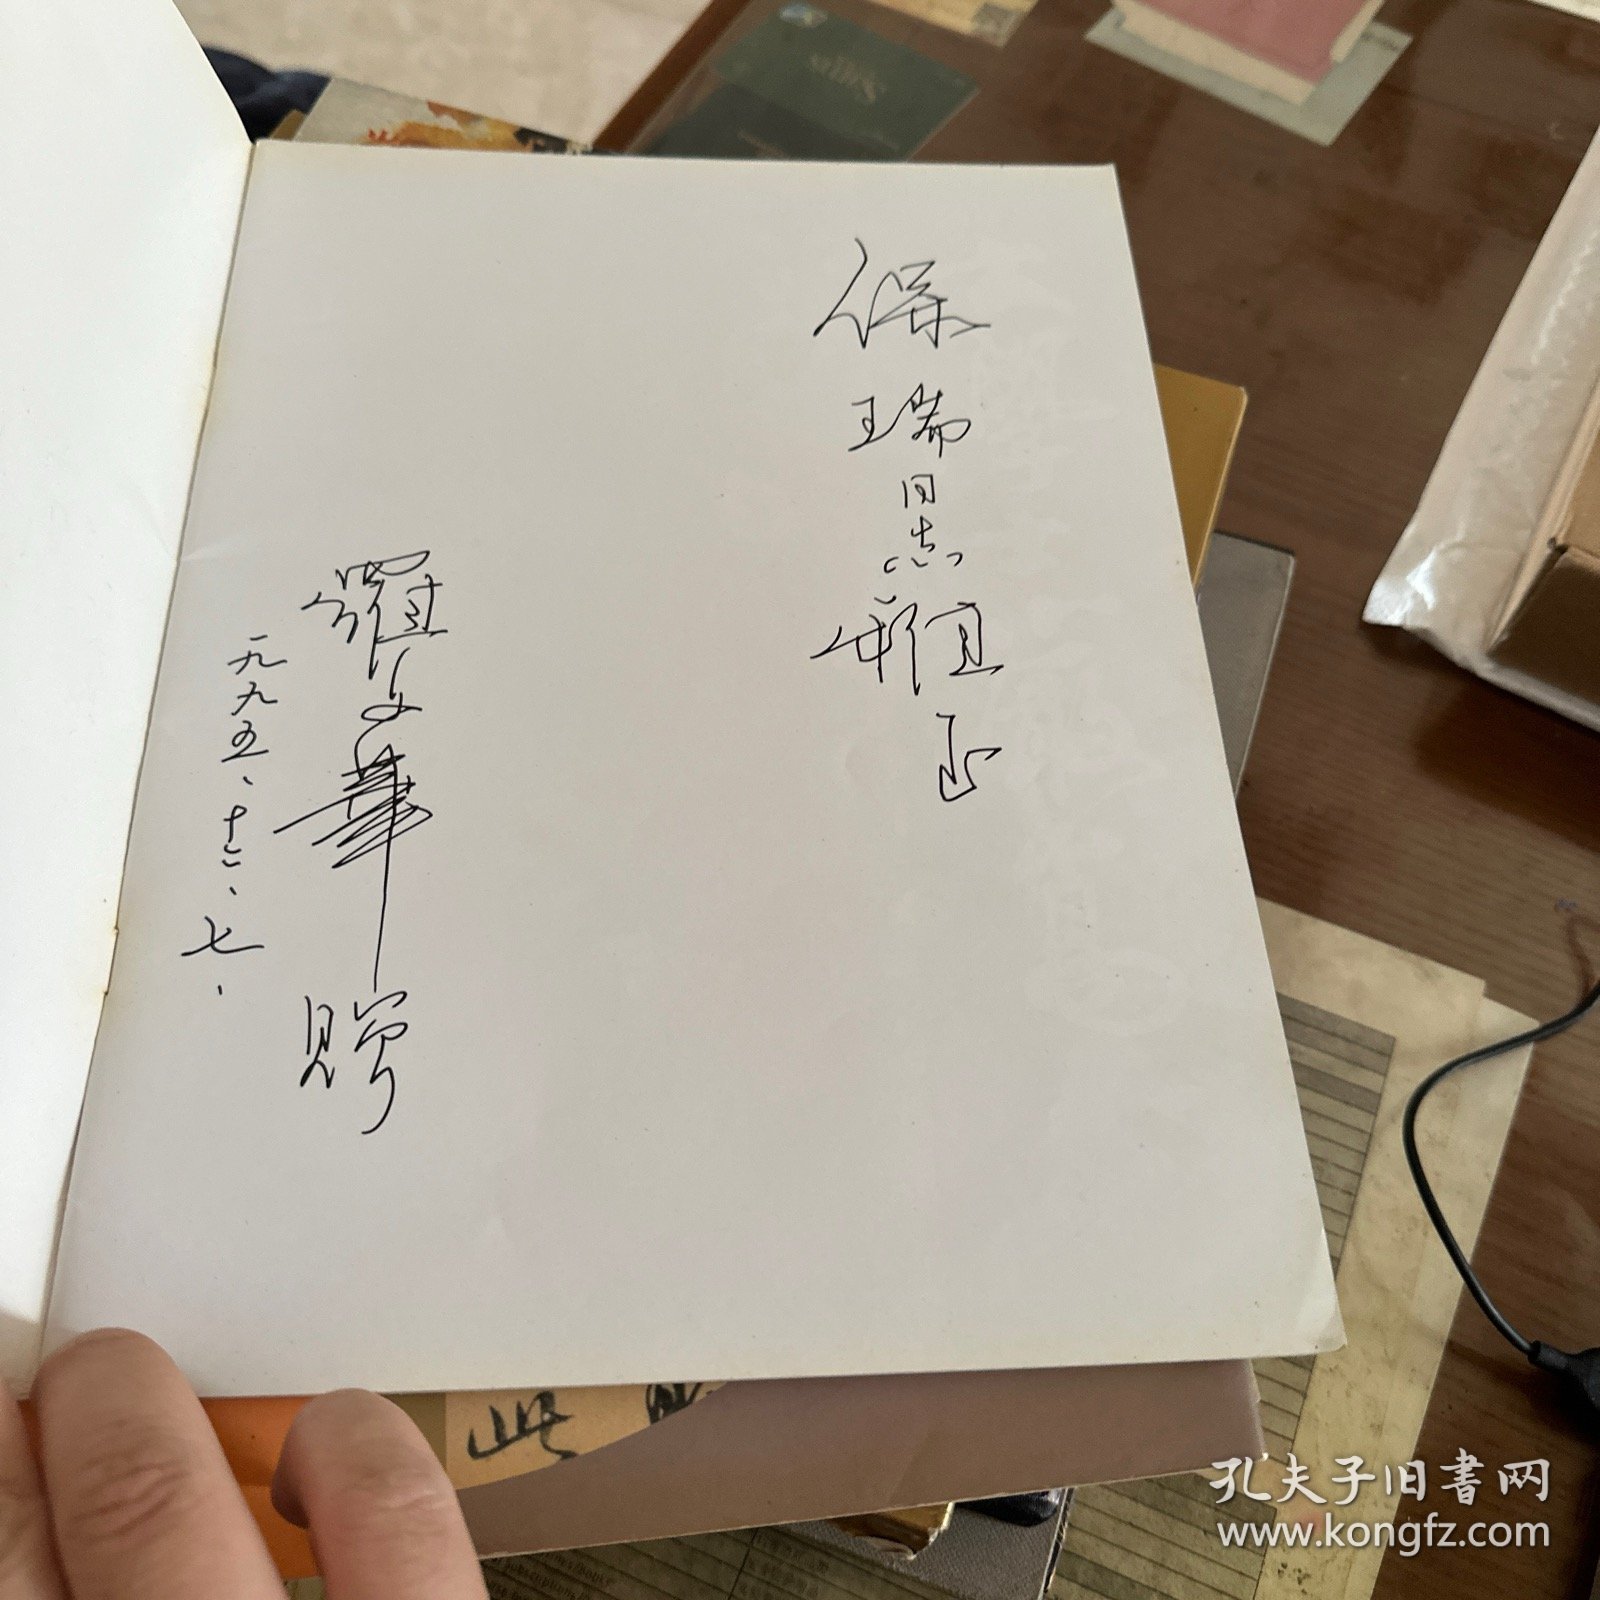 保瑞同志雅正
羅文華贈
一九九五、十二、七.
此
孔夫子旧書网
www.kongfz.com